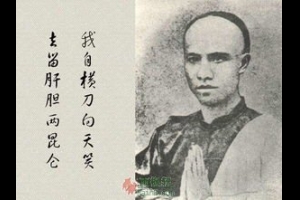 我自横刀向天笑
去留肝胆两昆仑